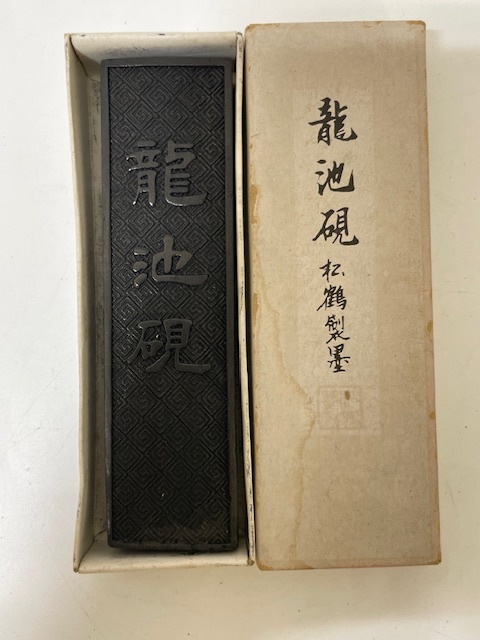 龍池硯
龍池硯 松鶴製墨